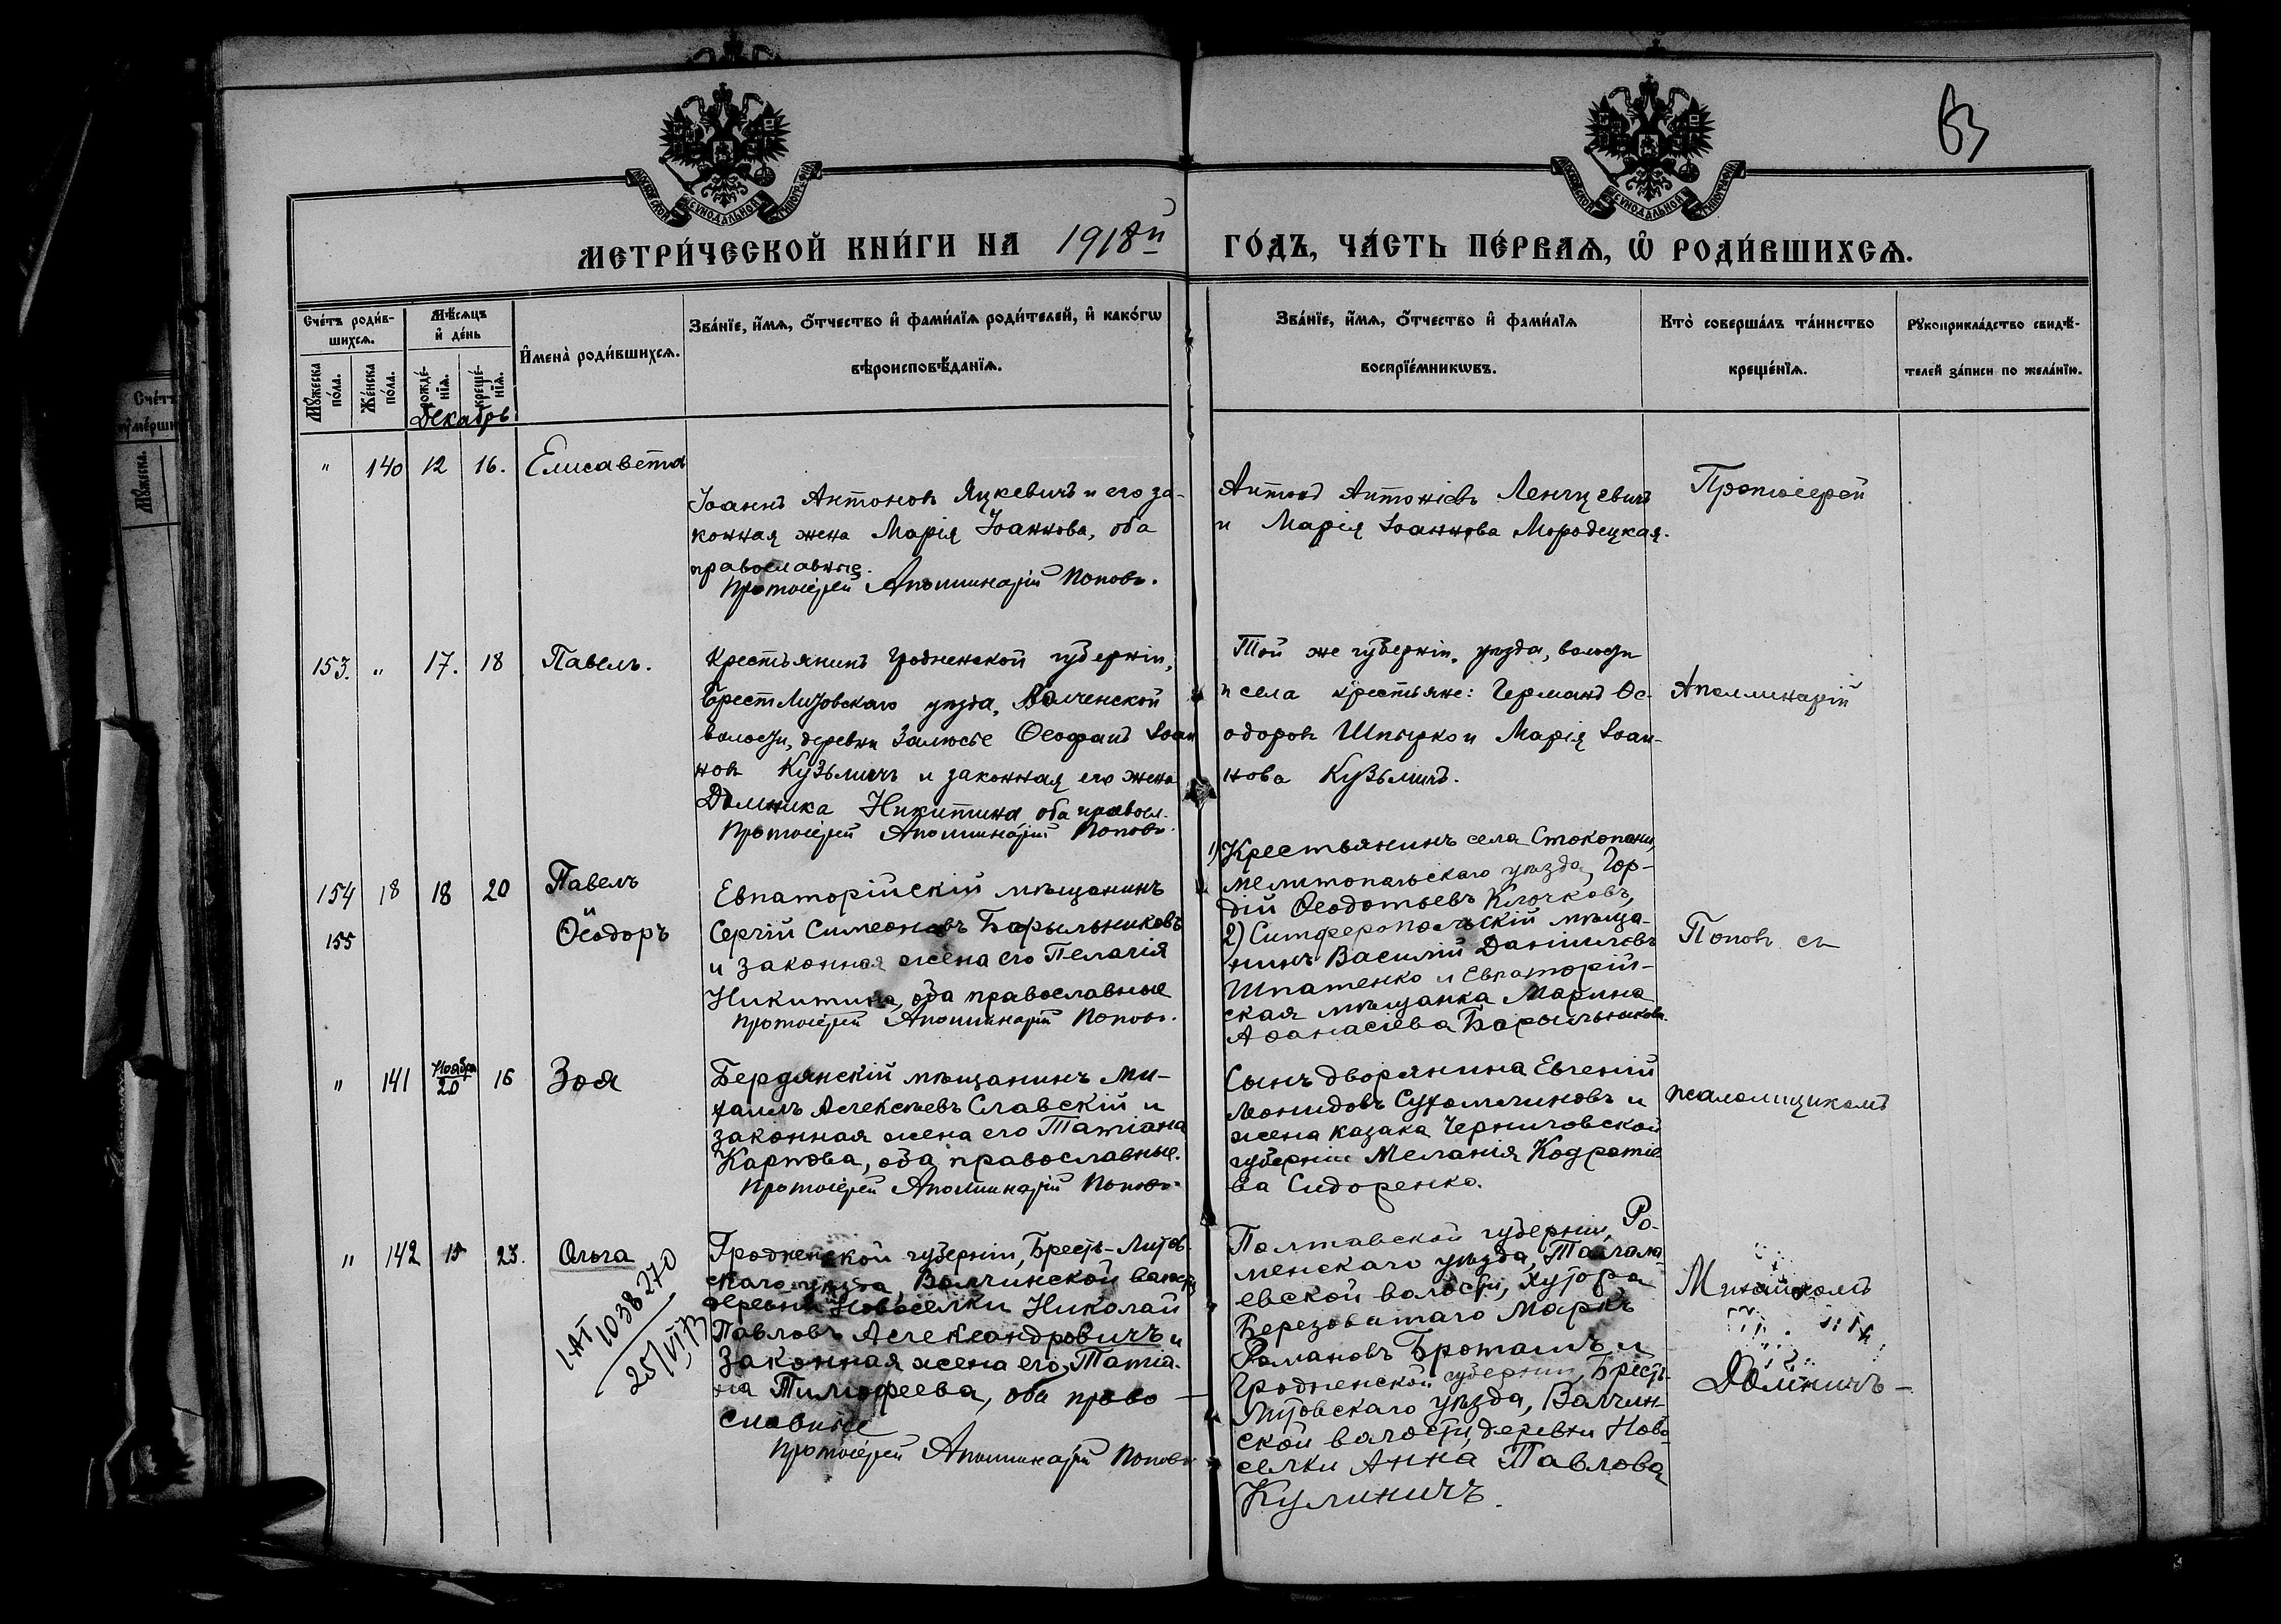 63
МОСКОВСКОЙ СѴНОДАЛЬНОЙ ТИПОГРАФІИ
МОСКОВСКОЙ СѴНОДАЛЬНОЙ ТИПОГРАФІИ
МЕТРИ́ЧЕСКОЙ КНИ́ГИ НА 1918й ГО́ДЪ, ЧА́СТЬ ПЕ́РВАѦ, Ѡ҆ РОДИ́ВШИХСѦ.
Сче́тъ роди́в-
шихсѧ.
Мѣ́сѧцъ
и҆ де́нь
И҆мена̀ роди́вшихсѧ.
Зва́нїе, и҆́мѧ, ѻ҆́тчество и҆ фами́лїѧ роди́телей, и҆ како́гѡ
вѣроисповѣ́данїѧ.
Зва́нїе, и҆́мѧ, ѻ҆́тчество и҆ фами́лїѧ
воспрїе́мникѡвъ.
Кто̀ соверша́лъ та́инство
креще́нїѧ.
Рꙋкоприкла́дство свидѣ́-
телей за́писи по жела́нїю.
Мꙋ́жеска
по́ла.
Же́нска
по́ла.
рожде́-
нїѧ.
креще́-
нїѧ.
Декабрь
" 140 12 16. Елисавета
Іоаннъ Антоновъ Яцкевичъ и его за-
конная жена Марія Іоаннова, оба
православные.
Протоіерей Аполлинарій Поповъ.
Антоній Антоніевъ Ленцевичъ
и Марія Іоаннова Мородецкая.
Протоіерей
153. " 17. 18 Павелъ.
Крестьянинъ Гродненской губерніи,
Брест Литовскаго уѣзда, Волченской
волости, деревни Залюсье Ѳеофанъ Іоан
новъ Кузьмичъ и законная его жена
Домника Никитина оба правосл.
Протоіерей Аполлинарій Поповъ.
Той же губерніи, уѣзда, волости
и села крестьяне: Германъ Ѳе-
одоровъ Шпырко и Марія Іоан-
нова Кузьмичъ.
Аполлинарій
154 18 18 20 Павелъ
и
155 Ѳеодоръ
Евпаторійскій мѣщанинъ
Сергій Симеоновъ Барыльниковъ
и законная жена его Пелагія
Никитина, оба православные
Протоіерей Аполлинарій Поповъ.
1) Крестьянинъ села Стокопани,
Мелитопольскаго уѣзда, Гор-
дій Ѳеодотьевъ Клочковъ,
2) Симферопольскій мѣща-
нинъ Василій Даниловъ
Шпатенко и Евпаторій-
ская мѣщанка Марина
Аѳанасіева Барыльникова.
Поповъ съ
" 141 Ноября 20 16 Зоя
Бердянскій мѣщанинъ Ми-
хаилъ Алексѣевъ Славскій и
законная жена его Татіана
Карпова, оба православные.
Протоіерей Аполлинарій Поповъ
Сынъ дворянина Евгеній
Леонидовъ Сухомлиновъ и
жена казака Черниговской
губерніи Меланія Кодратіе
ва Сидоренко.
псаломщикомъ
" 142 15 23. Ольга
IAI 1038270
25/VI,73
Гродненской губерніи, Брестъ-Литов-
скаго уѣзда, Волчинской волости,
деревни Новоселки Николай
Павловъ Александровичъ и
законная жена его, Татіа-
на Тимоѳеева, оба право
славные
Протоіерей Аполлинарій Поповъ
Полтавской губерніи, Ро-
менскаго уѣзда, Талала-
евской волости, хутора
Березоватаго Маркъ
Романовъ Броташъ и
Гродненской губерніи, Брестъ-
Литовскаго уѣзда, Волчин-
ской волости, деревни Ново-
селки Анна Павлова
Кулиничъ.
Михаиломъ